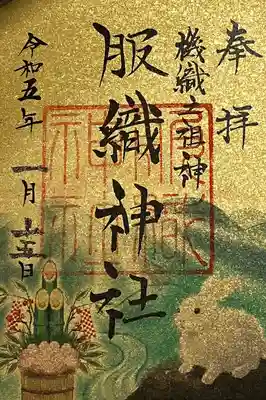 奉拝
機織之祖神
服織神社
令和五年 一月十五日